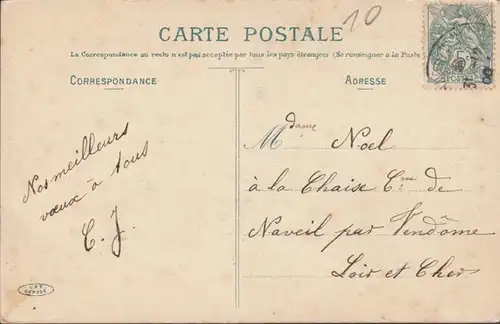 10
CARTE POSTALE
La Correspondance au recto n'est pas acceptée par tous les pays étrangers (Se renseigner à la Poste)
CORRESPONDANCE
ADRESSE
Nos meilleurs
vœux à tous
C. J.
Mdame Noel
à la Chaise Cne de
Naveil par Vendôme
Loir et Cher
DÉPOSÉ